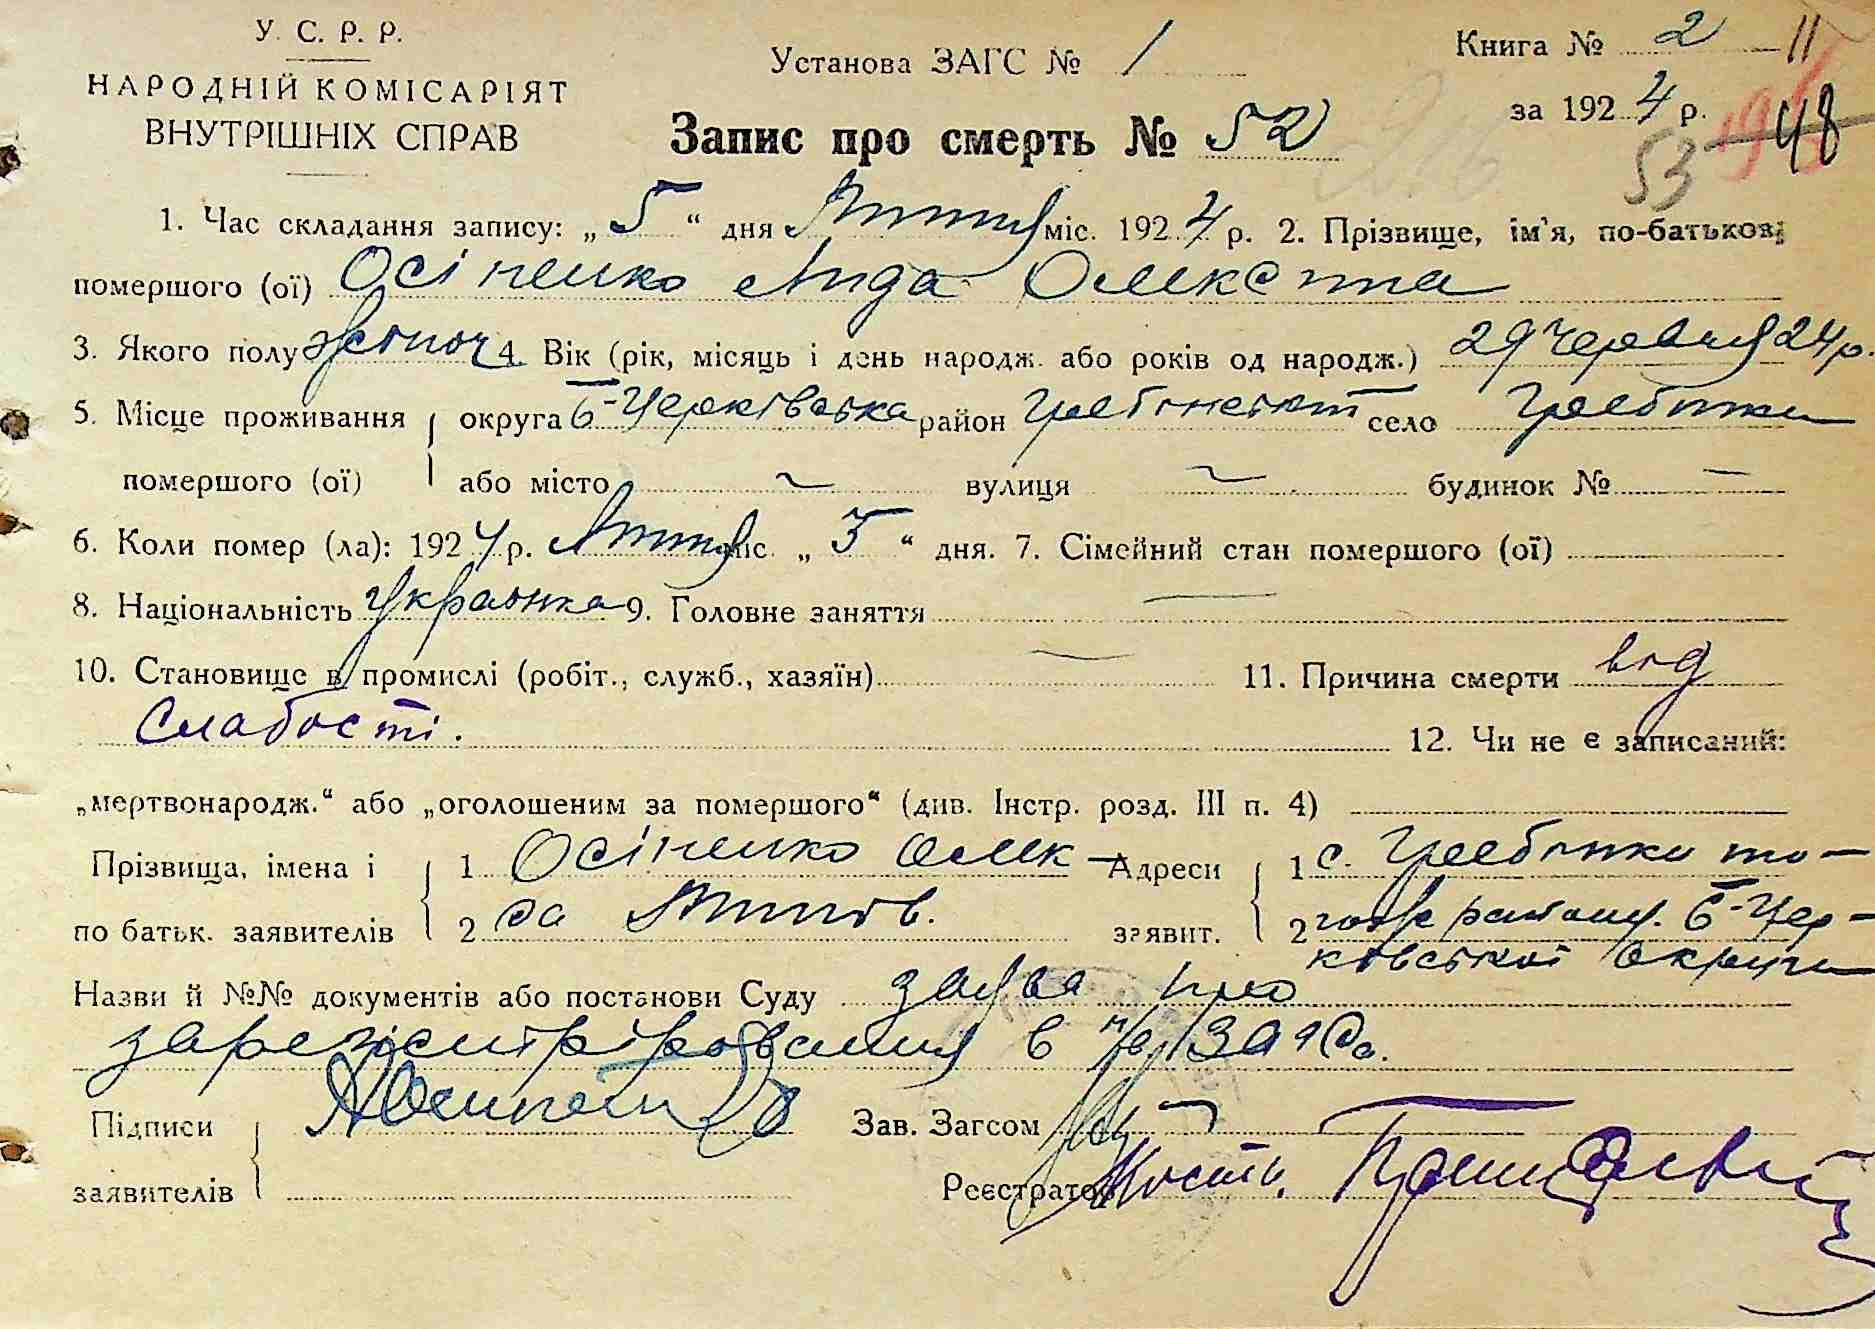 У. С. Р. Р.
НАРОДНІЙ КОМІСАРІЯТ
ВНУТРІШНІХ СПРАВ
Установа ЗАГС № 1
Книга № 2 11
за 1924 р. 48
53
Запис про смерть № 52
1. Час складання запису: „5“ дня Липня міс. 1924 р. 2. Прізвище, ім'я, по-батькові
помершого (ої) Осіпенко Лида Олексіїв
3. Якого полу жіноч 4. Вік (рік, місяць і день народж. або років од народж.) 29 Червня 24 р.
5. Місце проживання округа Б-Церківська район Гребінський село Гребінки
помершого (ої) або місто ~ вулиця ~ будинок № —
6. Коли помер (ла): 1924 р. Липня міс. „3“ дня. 7. Сімейний стан помершого (ої)
8. Національність Українка 9. Головне заняття —
10. Становище в промислі (робіт., служб., хазяїн) — 11. Причина смерти від
слабості. 12. Чи не є записаний:
„мертвонародж.“ або „оголошеним за помершого“ (див. Інстр. розд. III п. 4)
Прізвища, імена і 1 Осіпенко Олек- Адреси 1 с. Гребінки то-
по батьк. заявителів 2 са заявит. 2 гож району Б-Цер-
ківської Округи
Назви й №№ документів або постанови Суду заява про
зарегістрірования в ЗАГСі.
Підписи Зав. Загсом
заявителів Реєстратор